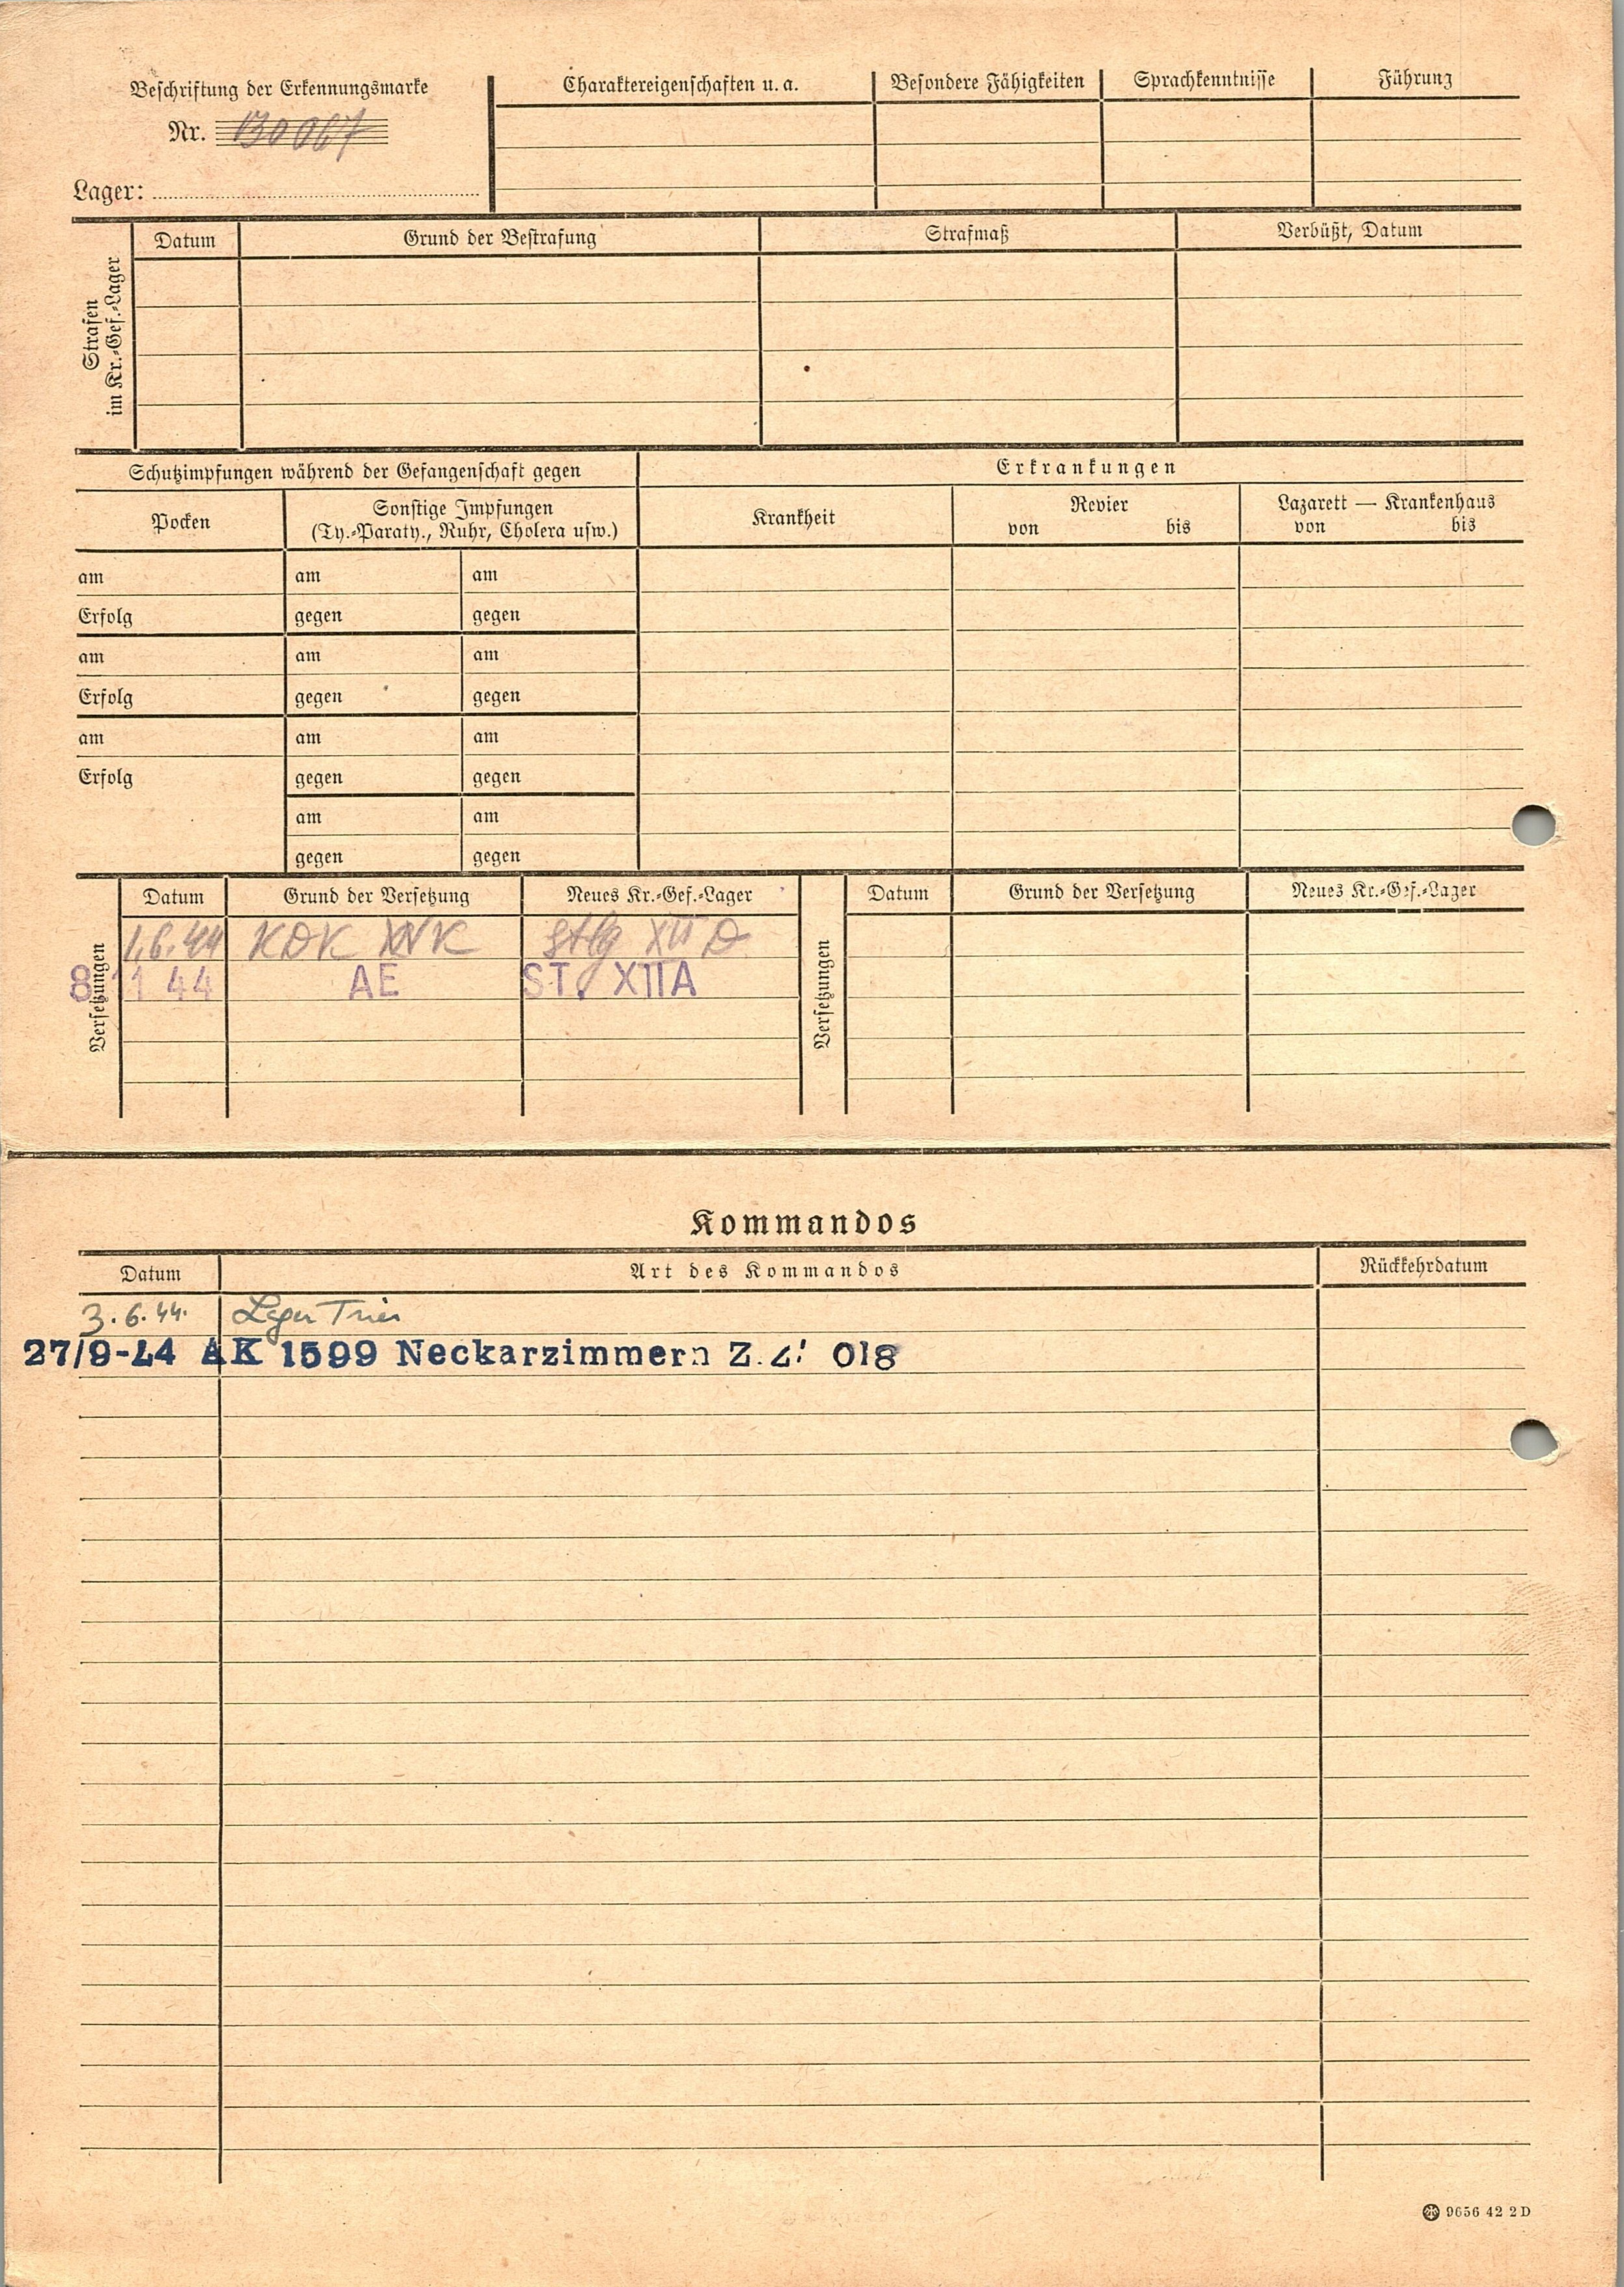 Beschriftung der Erkennungsmarke
Nr. 130067
Lager:
Charaktereigenschaften u. a.
Besondere Fähigkeiten
Sprachkenntnisse
Führung
Strafen
im Kr.-Gef.-Lager
Datum
Grund der Bestrafung
Strafmaß
Verbüßt, Datum
Schutzimpfungen während der Gefangenschaft gegen
Erkrankungen
Pocken
Sonstige Impfungen
(Ty.-Paraty., Ruhr, Cholera usw.)
Krankheit
Revier
von bis
Lazarett — Krankenhaus
von bis
am am am
Erfolg gegen gegen
am am am
Erfolg gegen gegen
am am am
Erfolg gegen gegen
am am
gegen gegen
Versetzungen
Datum Grund der Versetzung Neues Kr.-Gef.-Lager
1.6.44 Stlg XII D
8 11 44 AE ST. XIIA
Versetzungen
Datum Grund der Versetzung Neues Kr.-Gef.-Lager
Kommandos
Datum Art des Kommandos Rückkehrdatum
3.6.44. Lager Trier
27/9-44 AK 1599 Neckarzimmern 018
9656 42 2 D